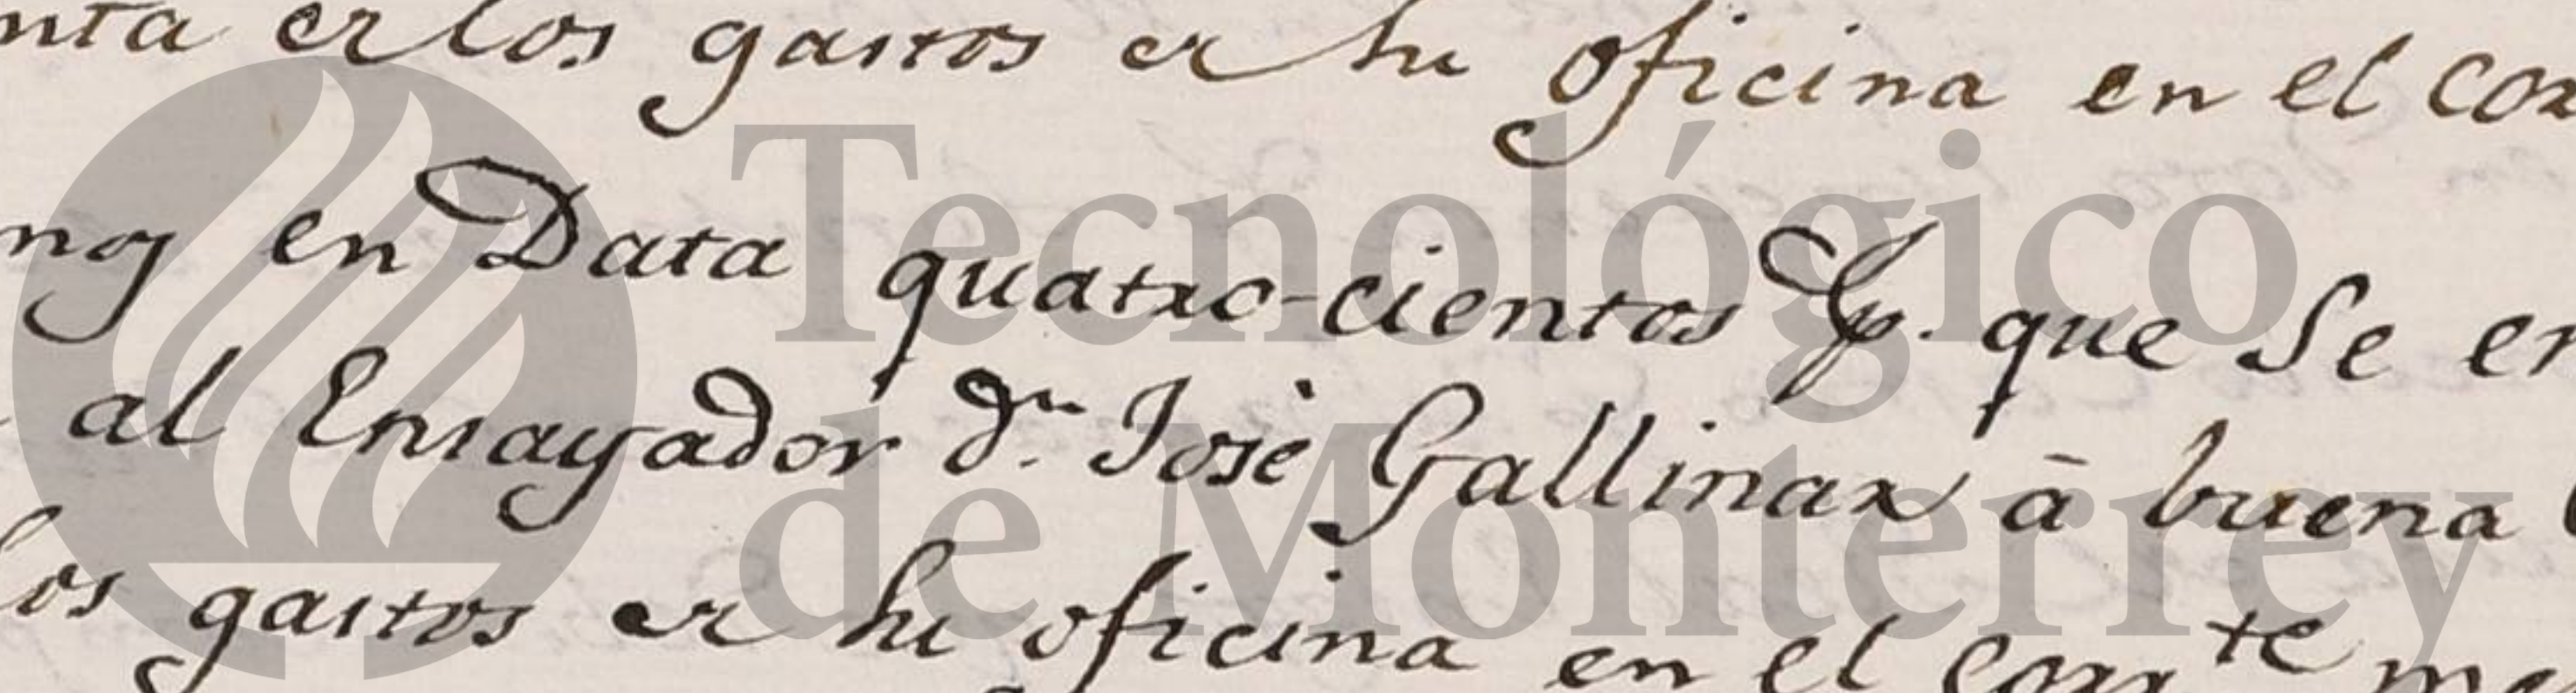 nta de los gastos de su oficina en el cor
nos en Data quatro-cientos p. que Se en
al Ensayador dn. Josè Gallinar ā buena
los gastos de su oficina en el corrte me
Tecnológico
de Monterrey